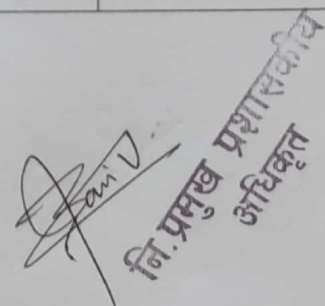 नि. प्रमुख प्रशासकीय
अधिकृत